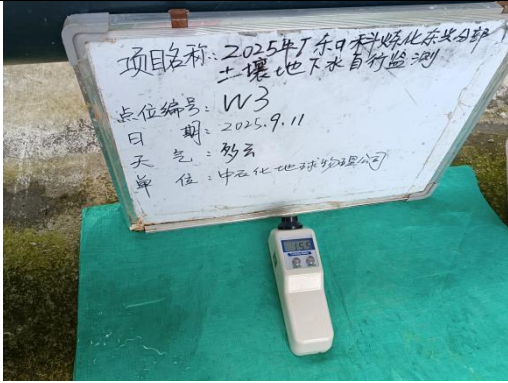 项目名称:2025年广东中科炼化东兴分部
土壤地下水自行监测
点位编号:W3
日 期:2025.9.11
天 气:多云
单 位:中石化地球物理公司